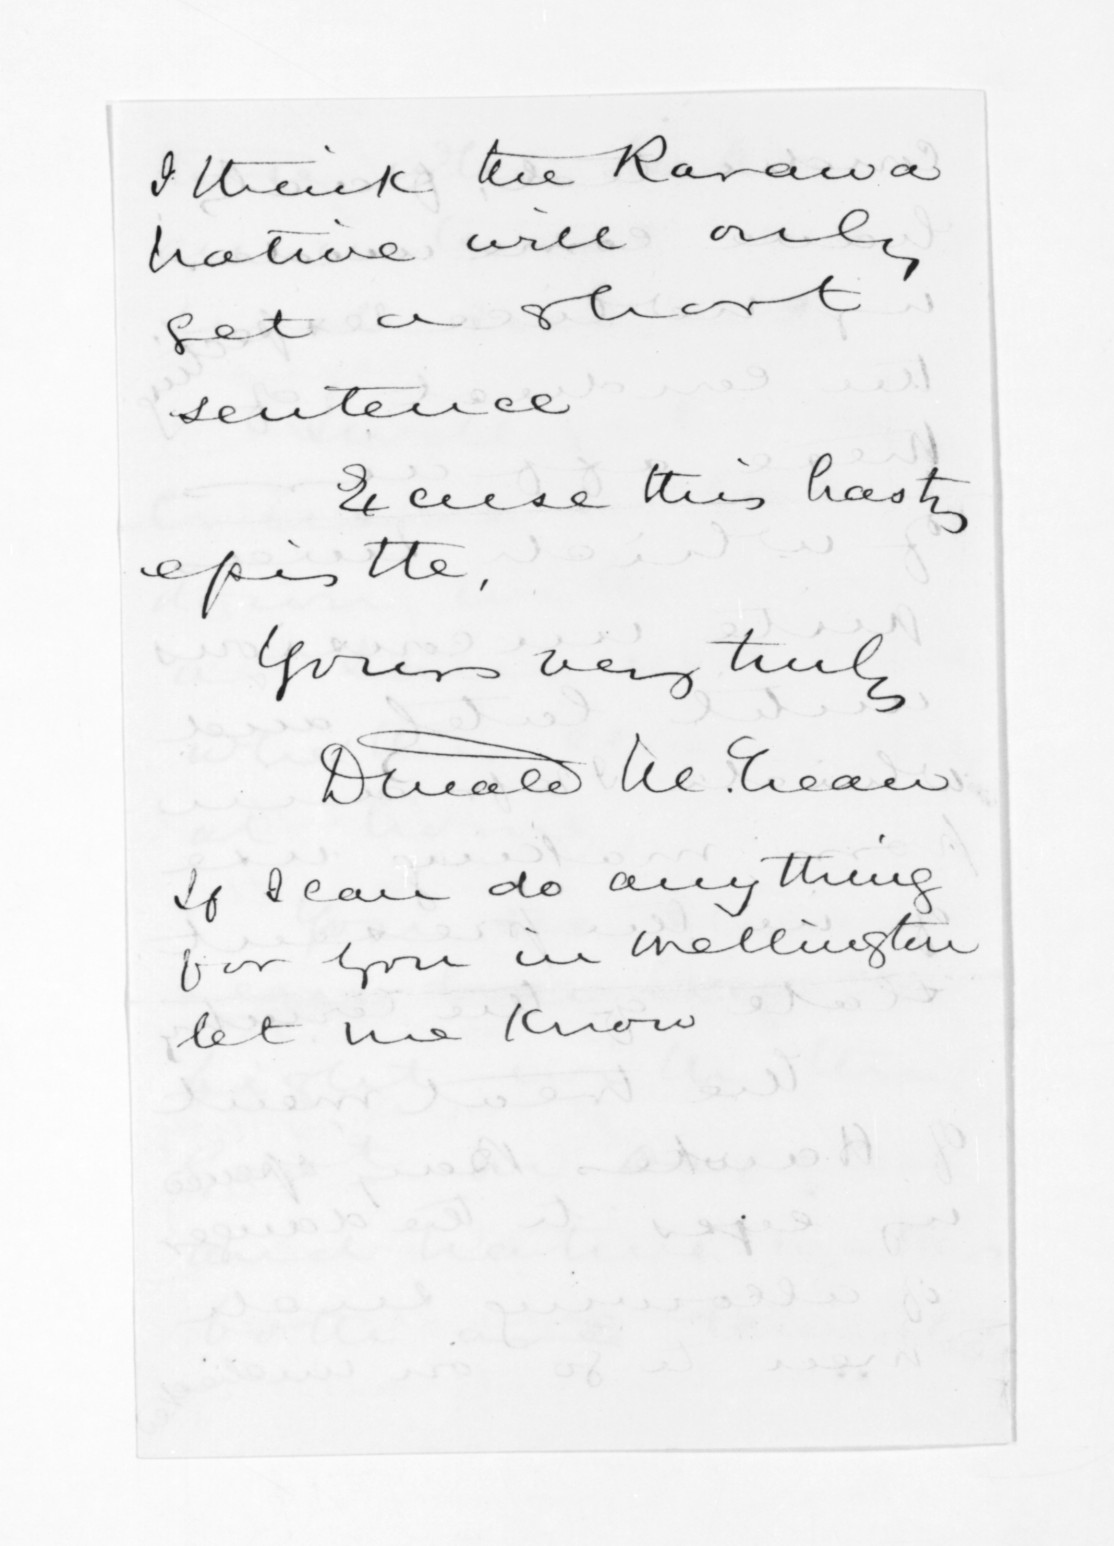 I think the Rarawa
native will only
get a short
sentence
Excuse this hasty
epistle,
Yours very truly
Donald McLean
If I can do anything
for you in Wellington
let me know